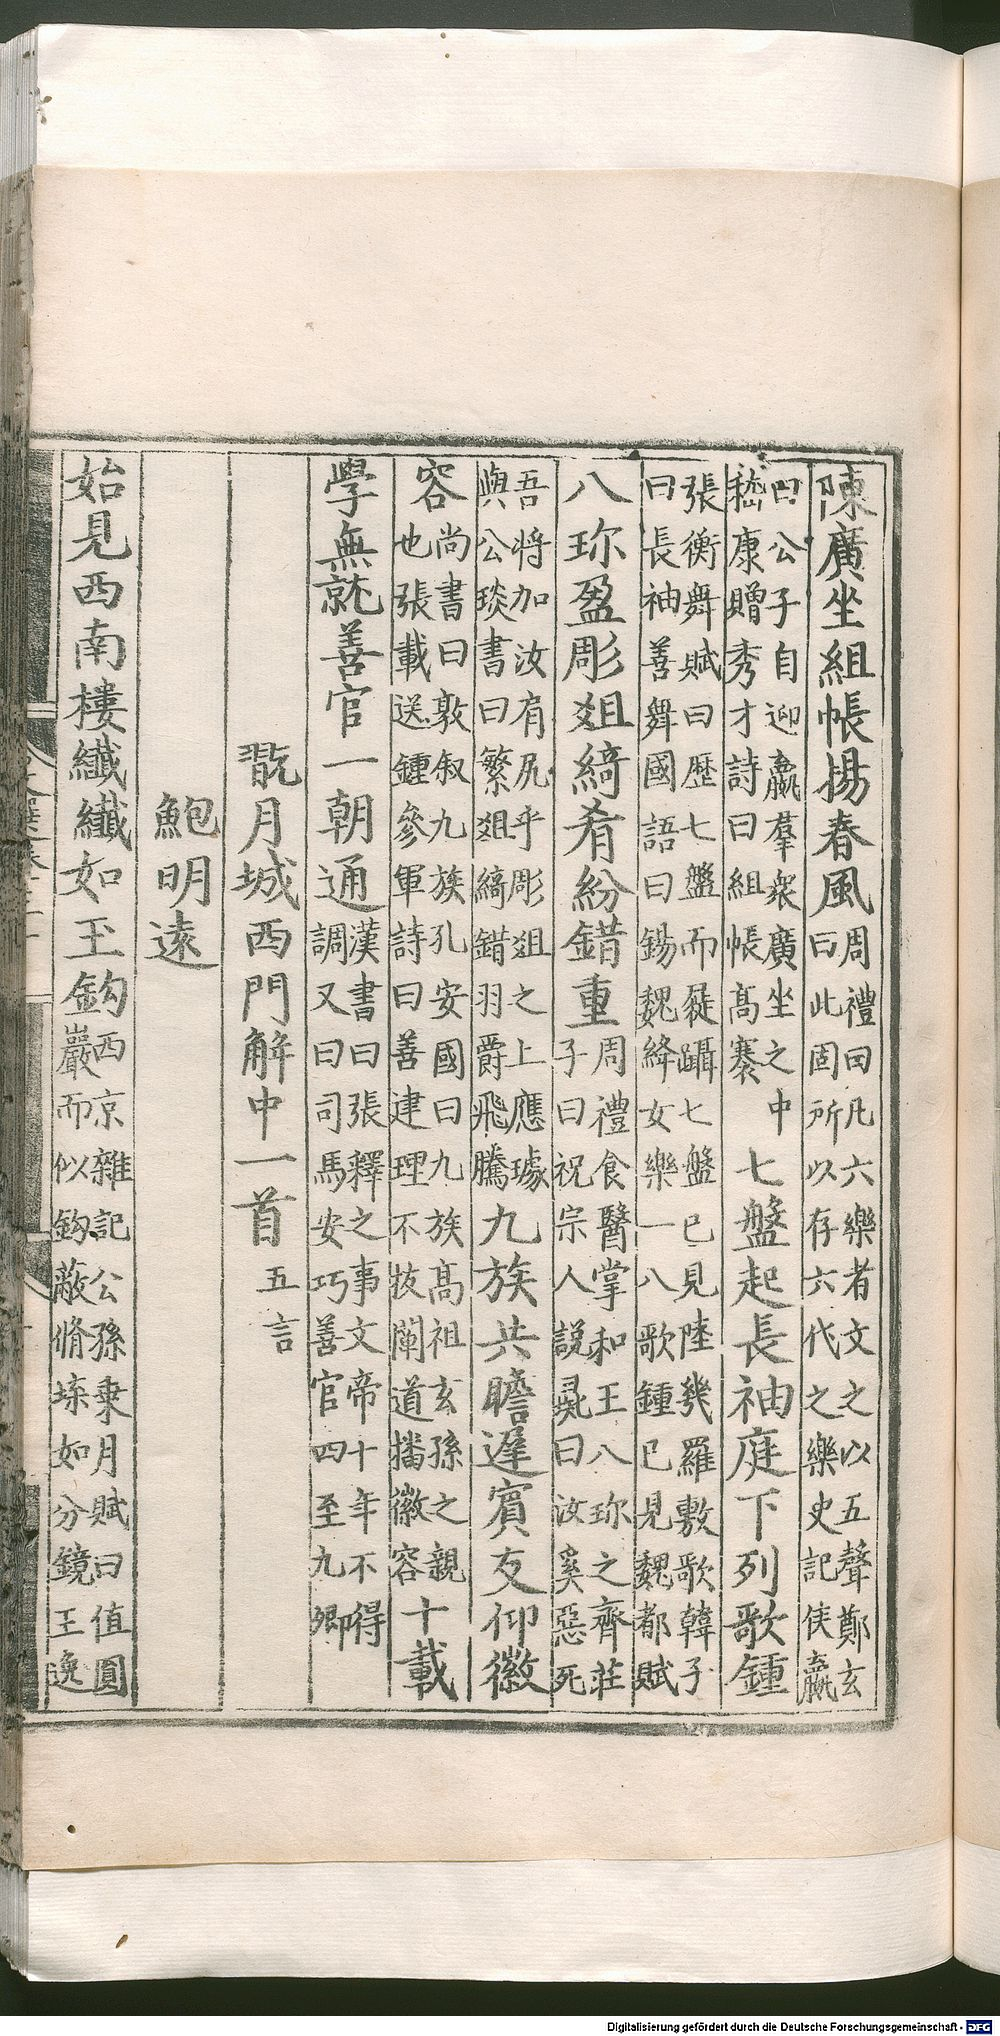 陳廣坐組帳揚春風周禮曰凡六樂者文之以五聲鄭玄
曰此固所以存六代之樂史記侯嬴
曰公子自迎嬴羣衆廣坐之中
嵇康贈秀才詩曰組帳高褰
七盤起長袖庭下列歌鍾
張衡舞賦曰歷七盤而屣躡七盤已見陸機羅敷歌韓子
曰長袖善舞國語曰錫魏絳女樂一八歌鍾已見魏都賦
八珎盈彫俎綺肴紛錯重周禮食醫掌和王八珎之齊莊
子曰祝宗人說彘曰汝奚惡死
吾將加汝肩尻乎彫俎之上應璩
與公琰書曰繁俎綺錯羽爵飛騰
九族共瞻遲賓友仰徽
容尚書曰敦叙九族孔安國曰九族高祖玄孫之親
也張載送鍾參軍詩曰善建理不拔闡道播徽容
十載
學無就善官一朝通漢書曰張釋之事文帝十年不得
調又曰司馬安巧善官四至九卿
翫月城西門解中一首五言
鮑明遠
始見西南樓纖纖如玉鈎西京雜記公孫乘月賦曰值圓
巖而似鈎蔽脩堞如分鏡王逸